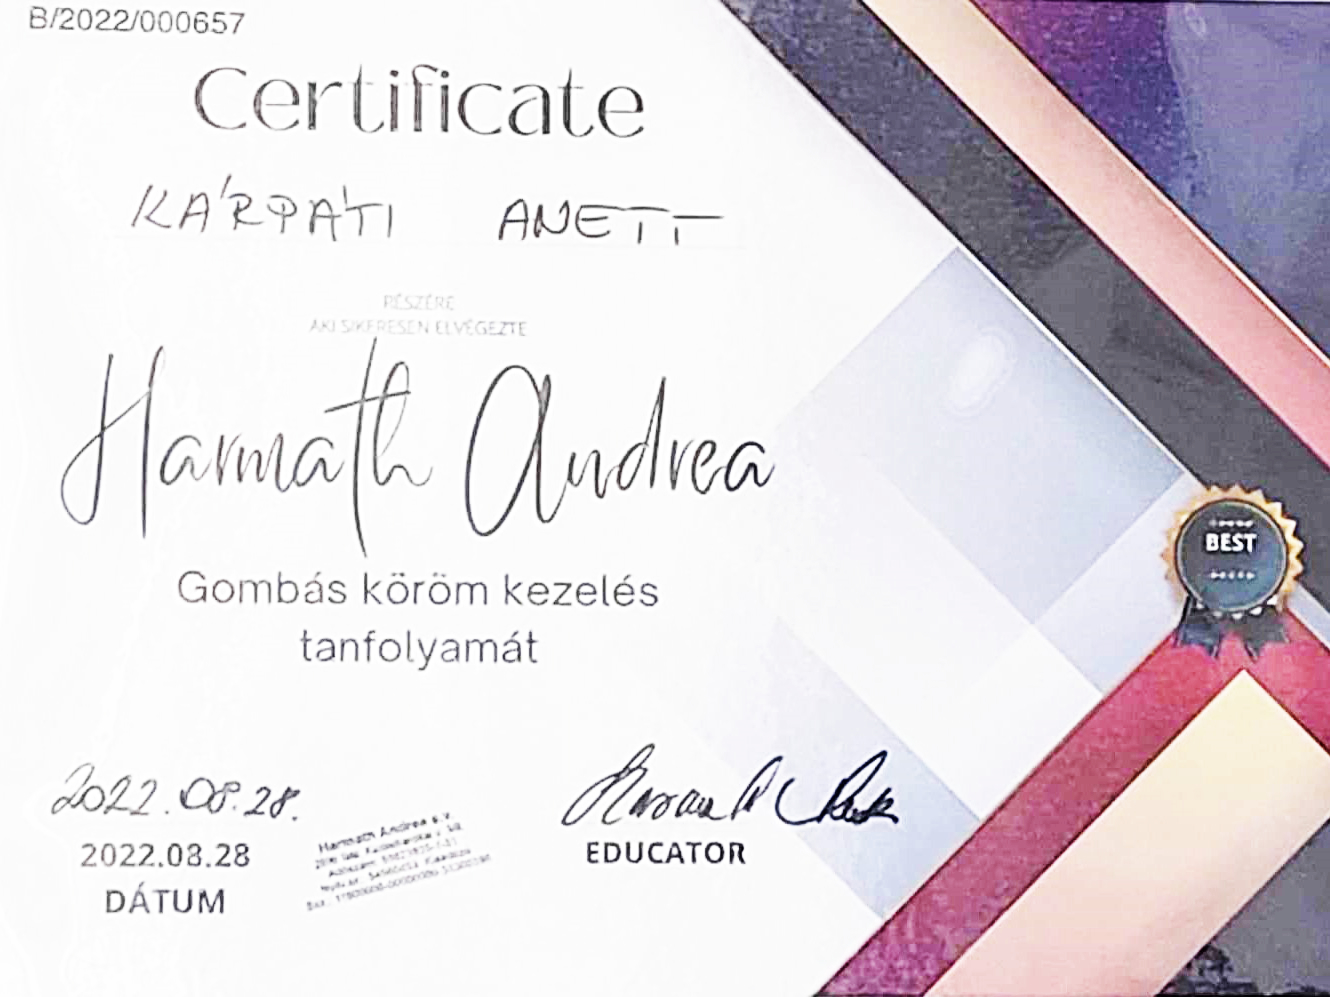 B/2022/000657
Certificate
KÁRPÁTI ANETT
RÉSZÉRE
AKI SIKERESEN ELVÉGEZTE
Harmath Andrea
Gombás köröm kezelés
tanfolyamát
BEST
2022.08.28.
2022.08.28
DÁTUM
Harmath Andrea e.v.
EDUCATOR